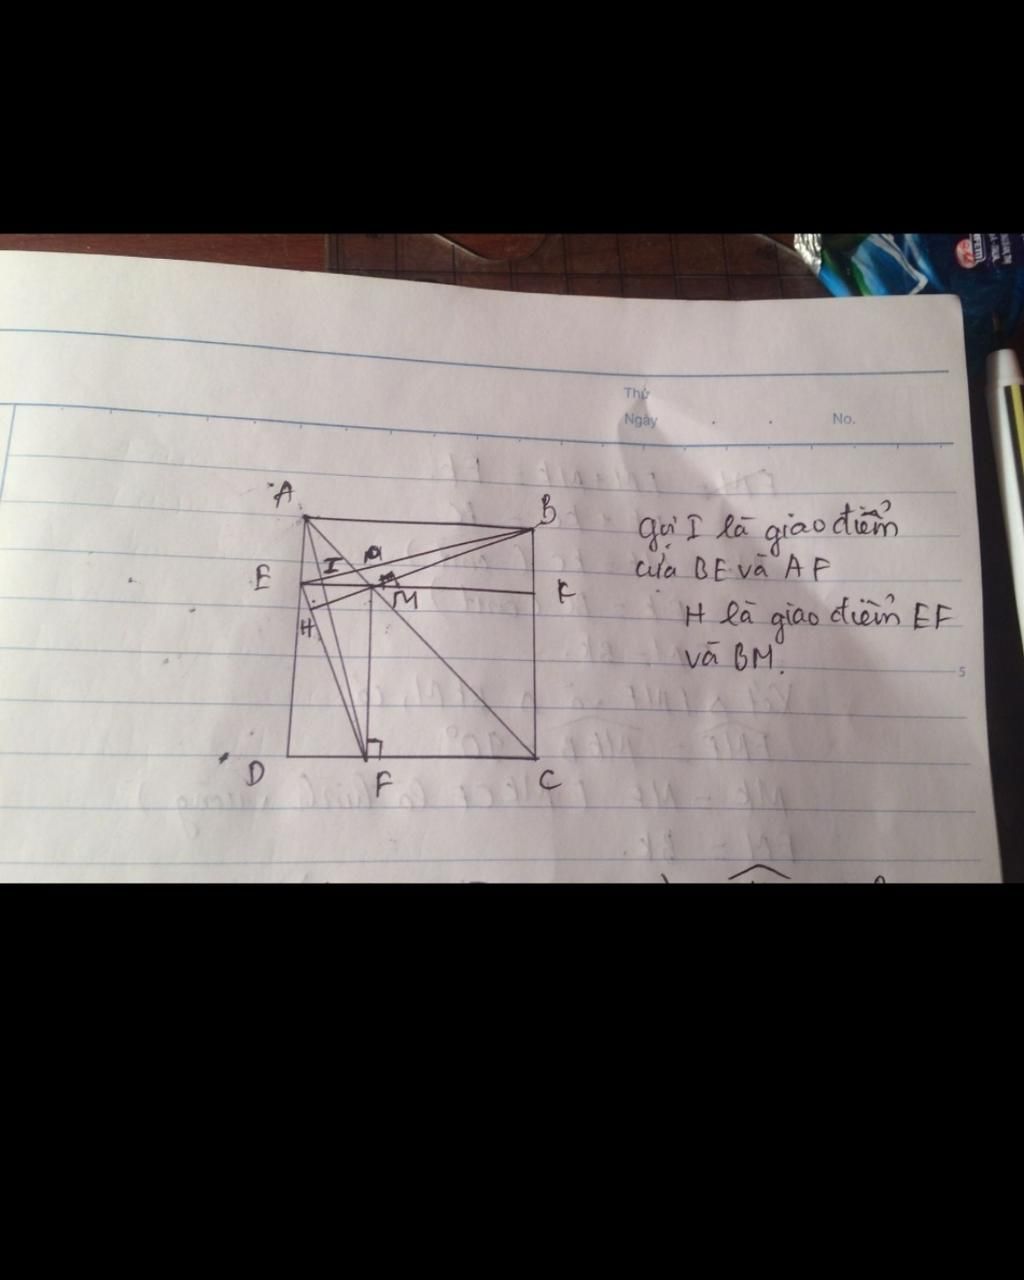 Thứ
Ngày
No.
A
B
Gọi I là giao điểm
của BE và AF
E
I
M
K
H là giao điểm EF
H
và BM.
5
D
F
C